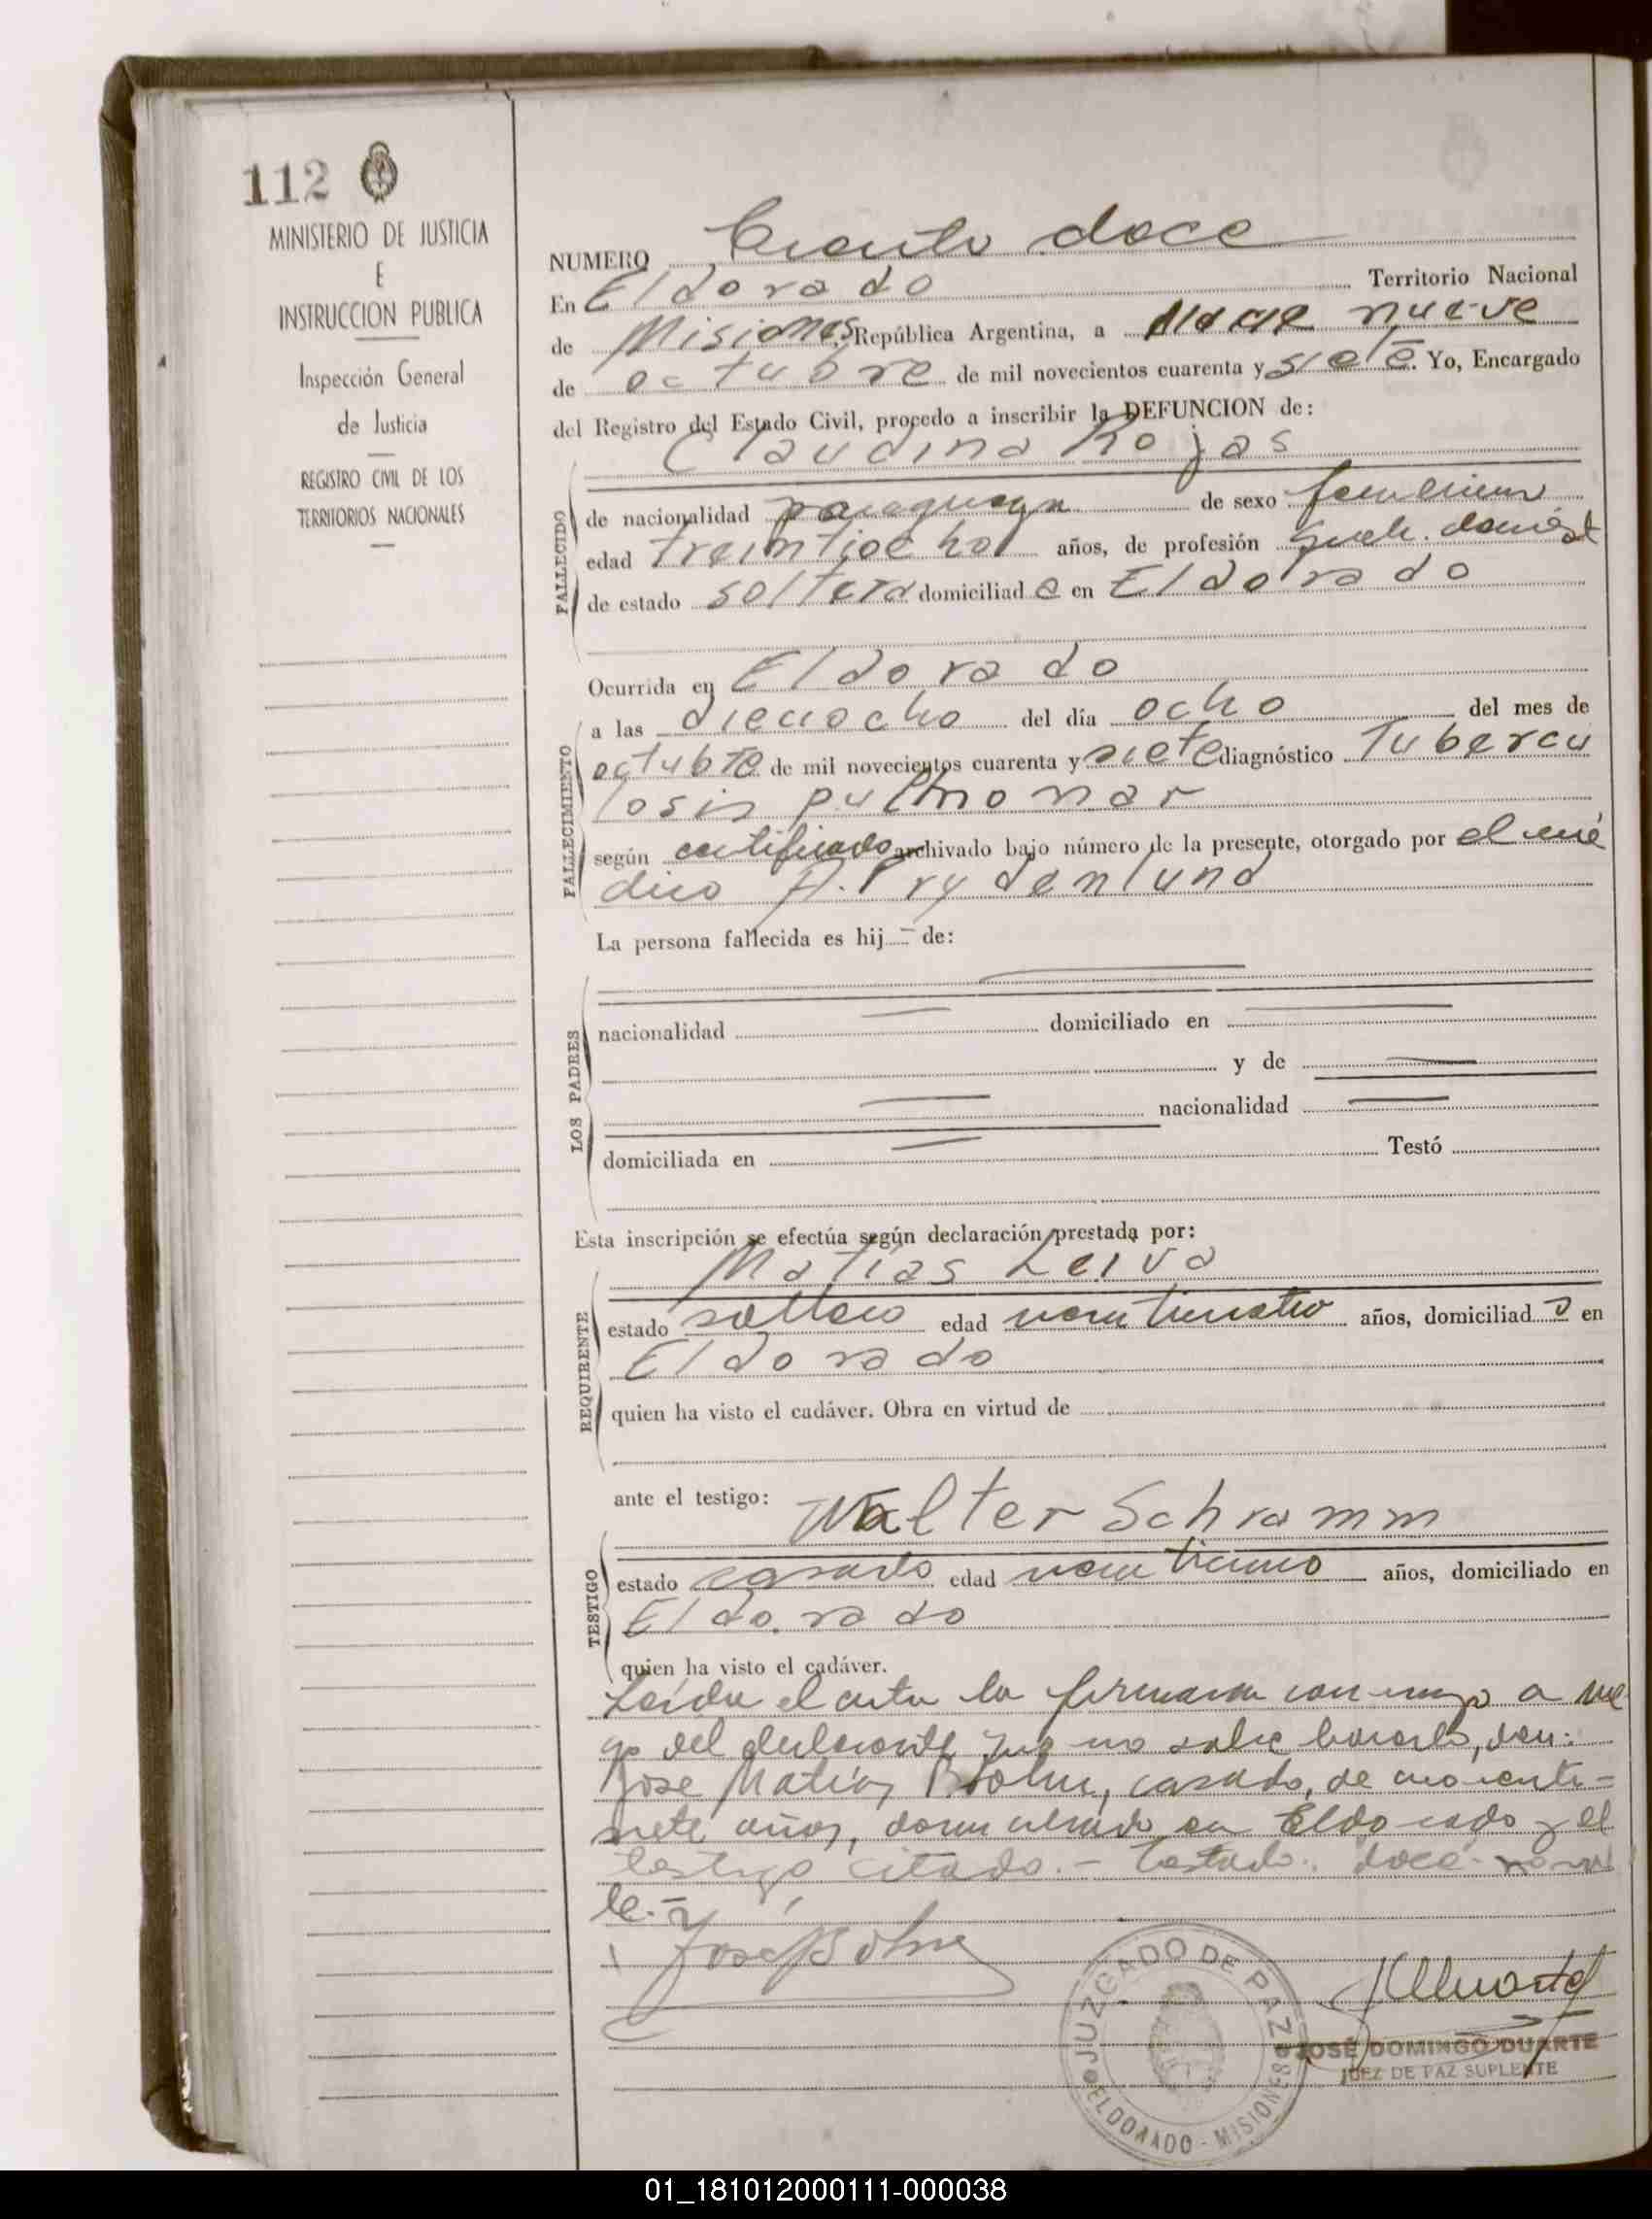 112
MINISTERIO DE JUSTICIA
E
INSTRUCCION PUBLICA
Inspección General
de Justicia
REGISTRO CIVIL DE LOS
TERRITORIOS NACIONALES
NUMERO Ciento doce
En Eldorado Territorio Nacional
de Misiones, República Argentina, a nueve
de octubre de mil novecientos cuarenta y siete. Yo, Encargado
del Registro del Estado Civil, procedo a inscribir la DEFUNCION de:
Claudina Rojas
FALLECIDO
de nacionalidad paraguaya de sexo femenino
edad treintiocho años, de profesión queh. domést
de estado soltera domiciliada en Eldorado
FALLECIMIENTO
Ocurrida en Eldorado
a las dieciocho del día ocho del mes de
octubre de mil novecientos cuarenta y siete diagnóstico Tubercu
losis pulmonar
según certificado archivado bajo número de la presente, otorgado por el mé
dico A. Prydenlund
LOS PADRES
La persona fallecida es hij – de:
nacionalidad domiciliado en
y de
nacionalidad
domiciliada en Testó
Esta inscripción se efectúa según declaración prestada por:
REQUIRENTE
Matias Leiva
estado soltero edad venticuatro años, domiciliado en
Eldorado
quien ha visto el cadáver. Obra en virtud de
ante el testigo: Walter Schramm
TESTIGO
estado casado edad años, domiciliado en
Eldorado
quien ha visto el cadáver.
Leída el acta la firmaron conmigo a rue
go del declarante que no sabe hacerlo, don:
José Matías Bohm, casado, de
siete años, domiciliado en Eldorado y el
testigo citado.– Testado: doce no val
le.–
José Bohm
JUZGADO DE PAZ
ELDORADO - MISIONES
JOSÉ DOMINGO DUARTE
JUEZ DE PAZ SUPLENTE
01_181012000111-000038